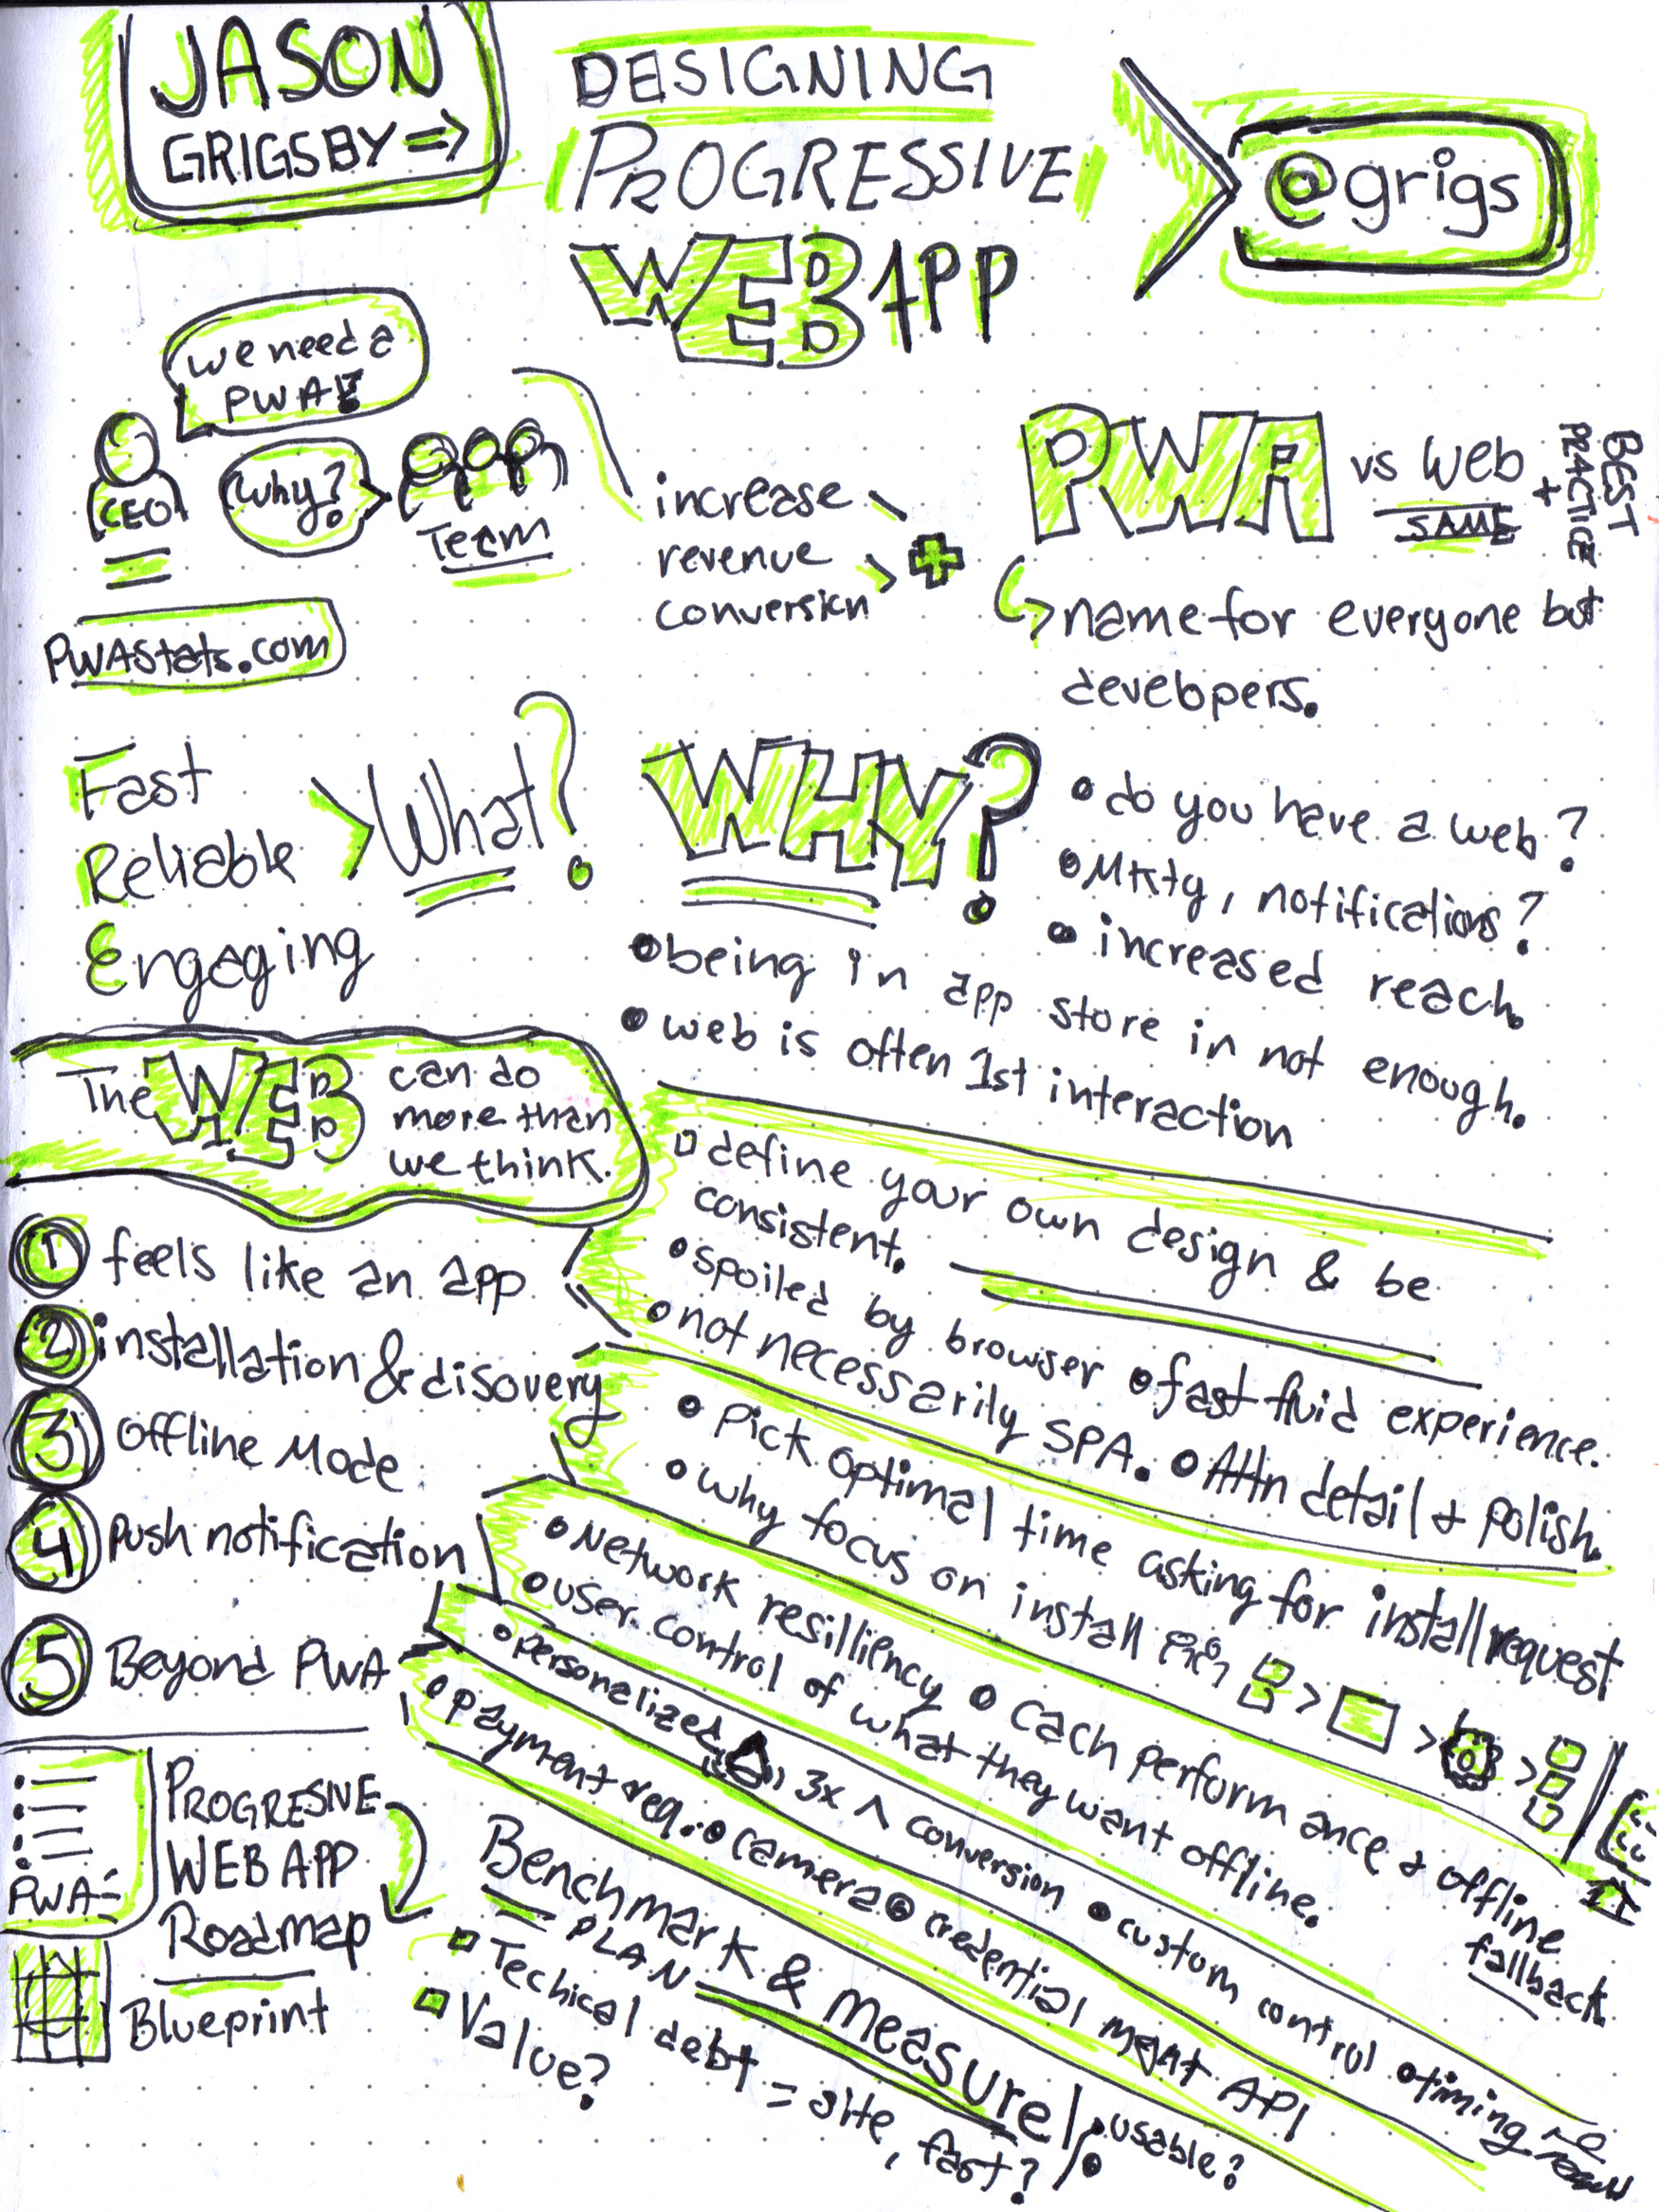 JASON
GRIGSBY =>
DESIGNING
PROGRESSIVE
WEB APP
@grigs
we need a
PWA!
CEO
Why?
Team
increase
revenue
conversion
PWA vs Web
SAME
+ BEST
PRACTICE
name for everyone but
developers.
PWAStats.com
Fast
Reliable
Engaging
What?
WHY?
• do you have a web?
• Mktg, notifications?
• increased reach.
• being in app store in not enough.
• web is often 1st interaction
The WEB can do
more than
we think.
1 feels like an app
define your own design & be
consistent.
• spoiled by browser • fast fluid experience.
• not necessarily SPA. • Attn detail + polish.
2 installation & disovery
• Pick optimal time asking for install request
• why focus on install
3 Offline Mode
• Network resilliency • Cach performance + offline
fallback.
• user control of what they want offline.
4 Push notification
• personalized 3x ^ conversion • custom control • timing
5 Beyond PWA
• payment req.. • camera • credential mgmt API
PWA
PROGRESIVE
WEB APP
Roadmap
Blueprint
Benchmark & measure
PLAN
Techical debt = site, fast?
• usable?
Value?